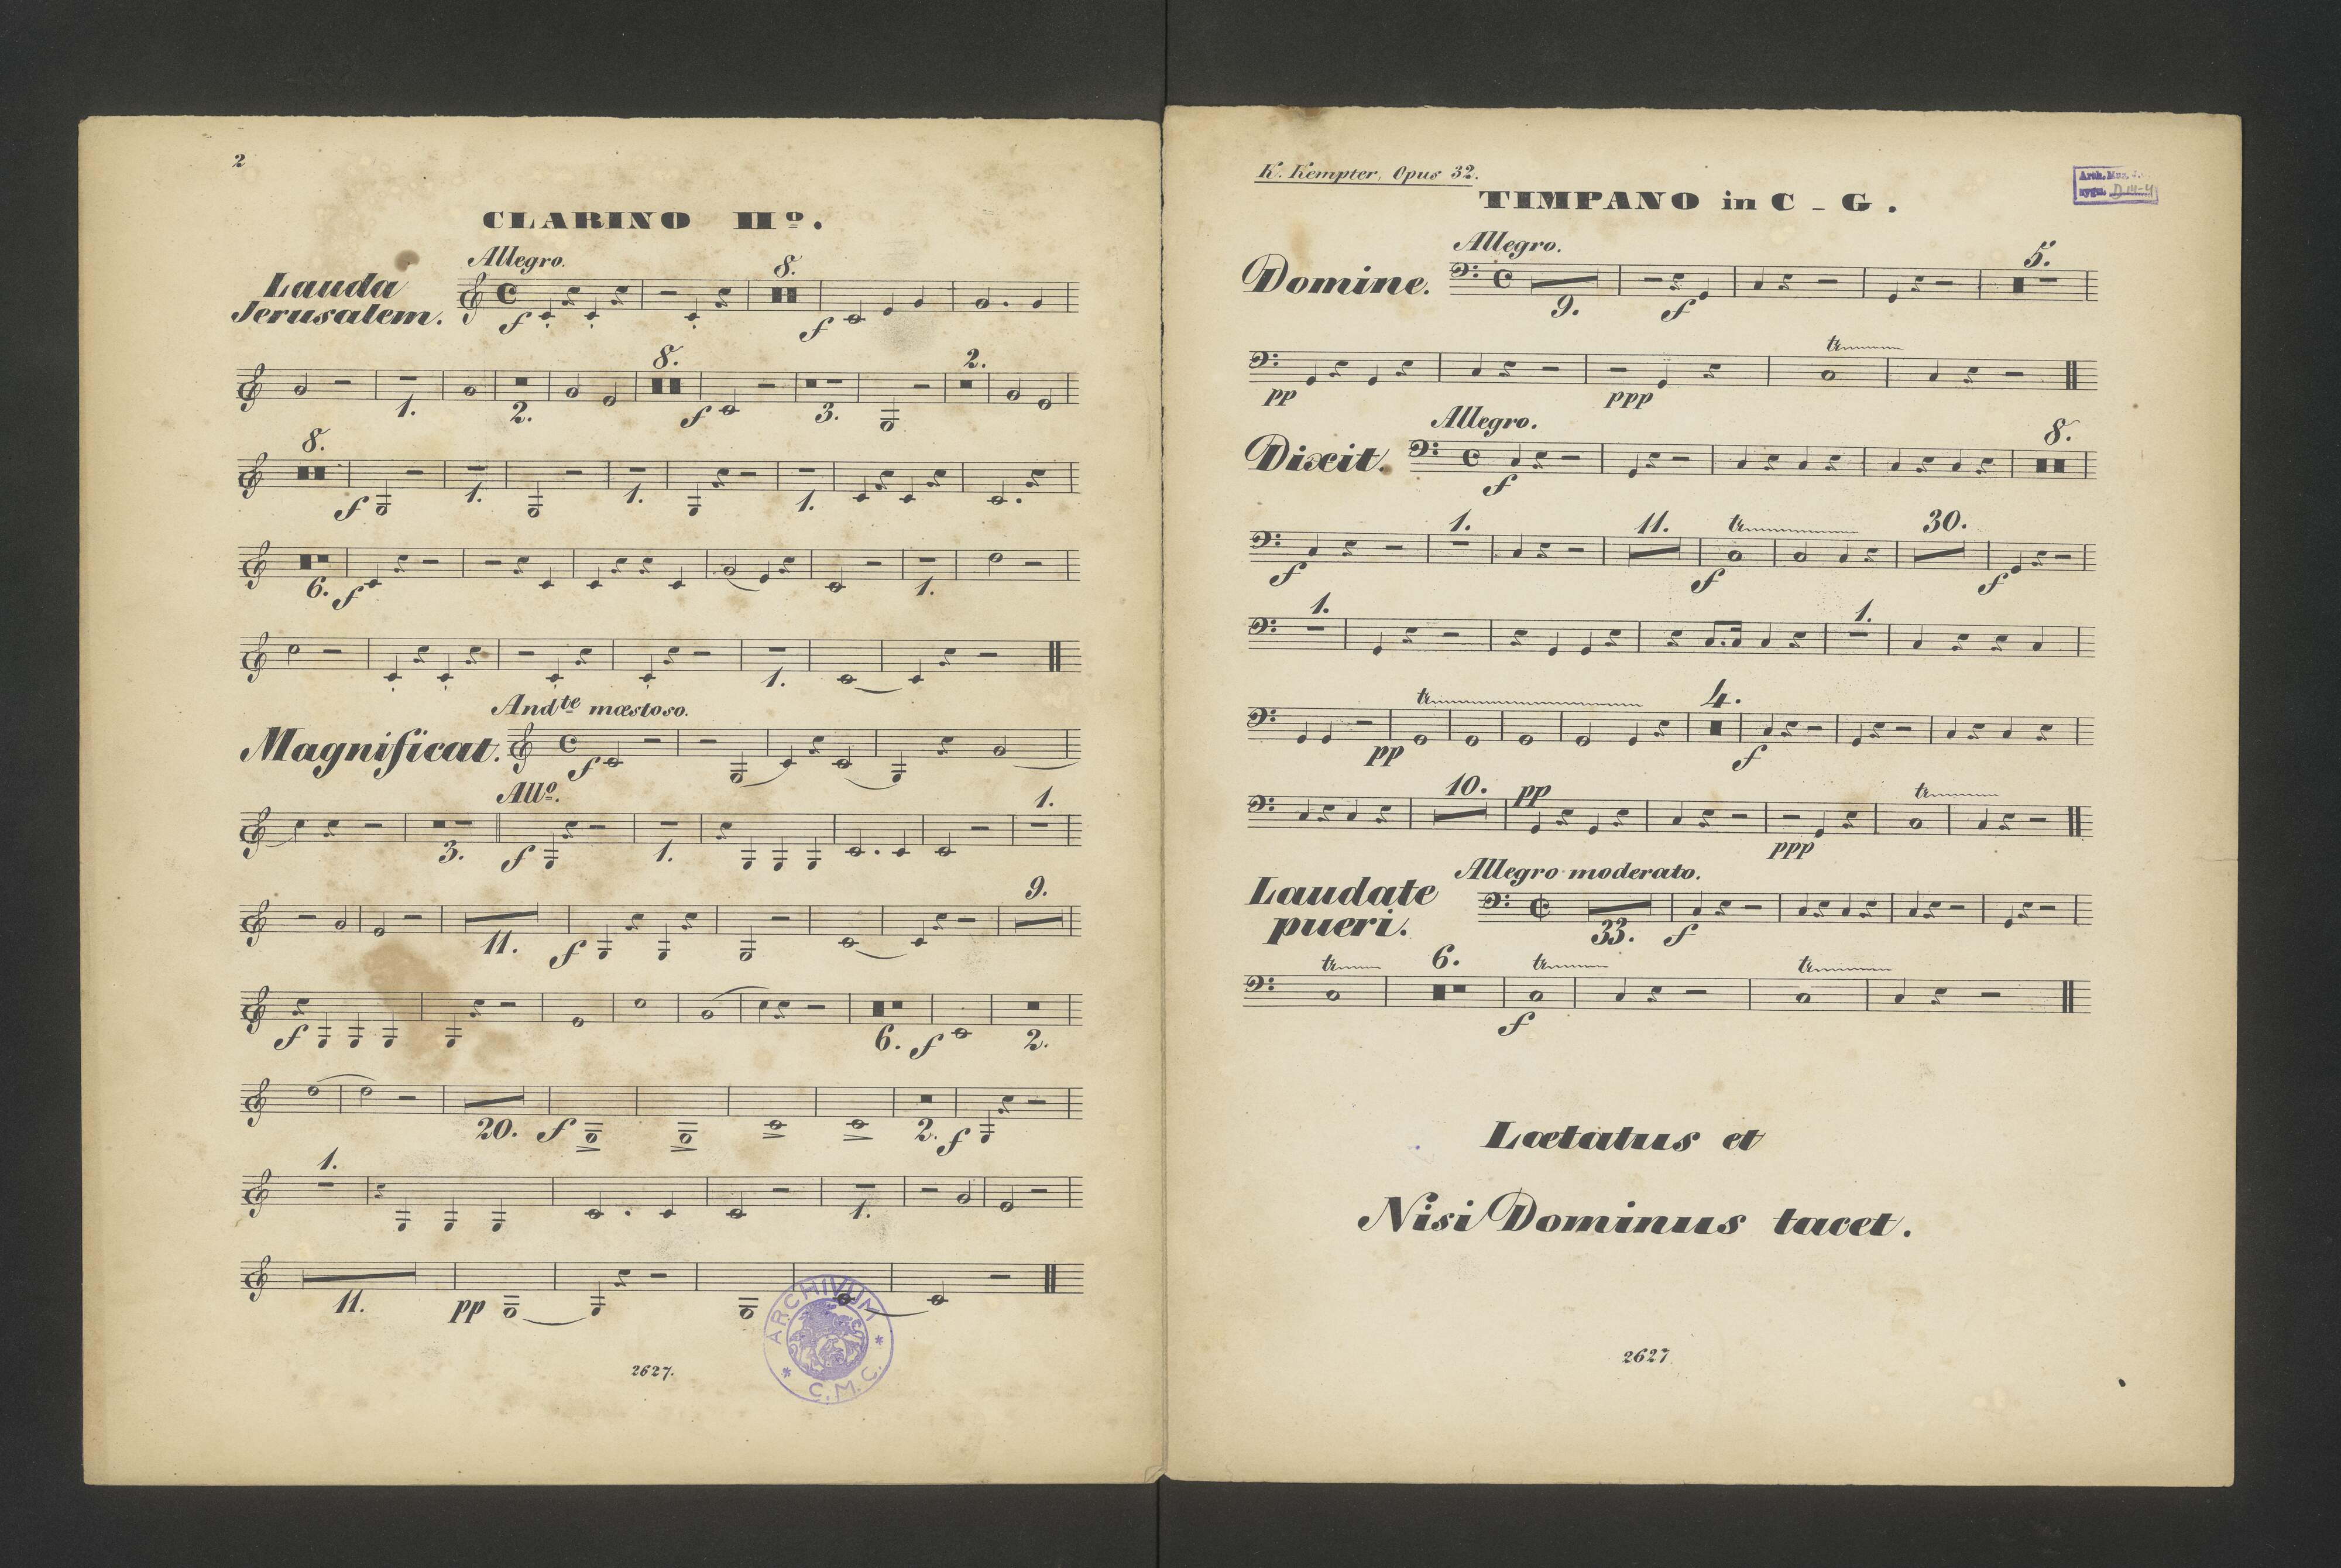 2
CLARINO IIº.
Allegro.
Lauda
Jerusalem.
8.
f
f
8.
2.
1.
2.
f
3.
8.
f
1.
1.
1.
6.
f
1.
1.
Andte mæstoso.
Magnificat.
f
Allº.
1.
3.
f
1.
9.
11.
f
f
6.
f
2.
20.
f
2.
f
1.
1.
11.
pp
ARCHIVUM
C.M.C.
2627.
K. Kempter, Opus 32.
TIMPANO in C - G.
Arch. Muz.
sygn.
Allegro.
Domine.
5.
9.
f
tr
pp
ppp
Allegro.
Dixit.
8.
f
1.
11.
tr
30.
f
f
f
1.
1.
tr
4.
pp
f
10.
pp
tr
ppp
Allegro moderato.
Laudate
pueri.
33.
f
tr
6.
tr
tr
f
Lætatus et
Nisi Dominus tacet.
2627